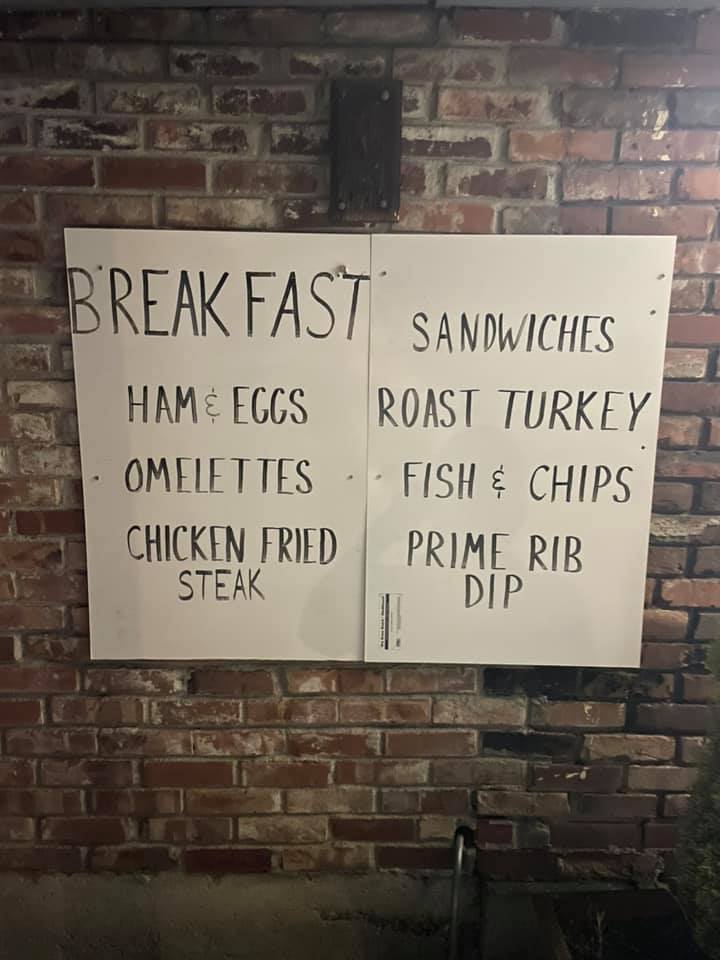 BREAKFAST
HAM & EGGS
OMELETTES
CHICKEN FRIED
STEAK
SANDWICHES
ROAST TURKEY
FISH & CHIPS
PRIME RIB
DIP